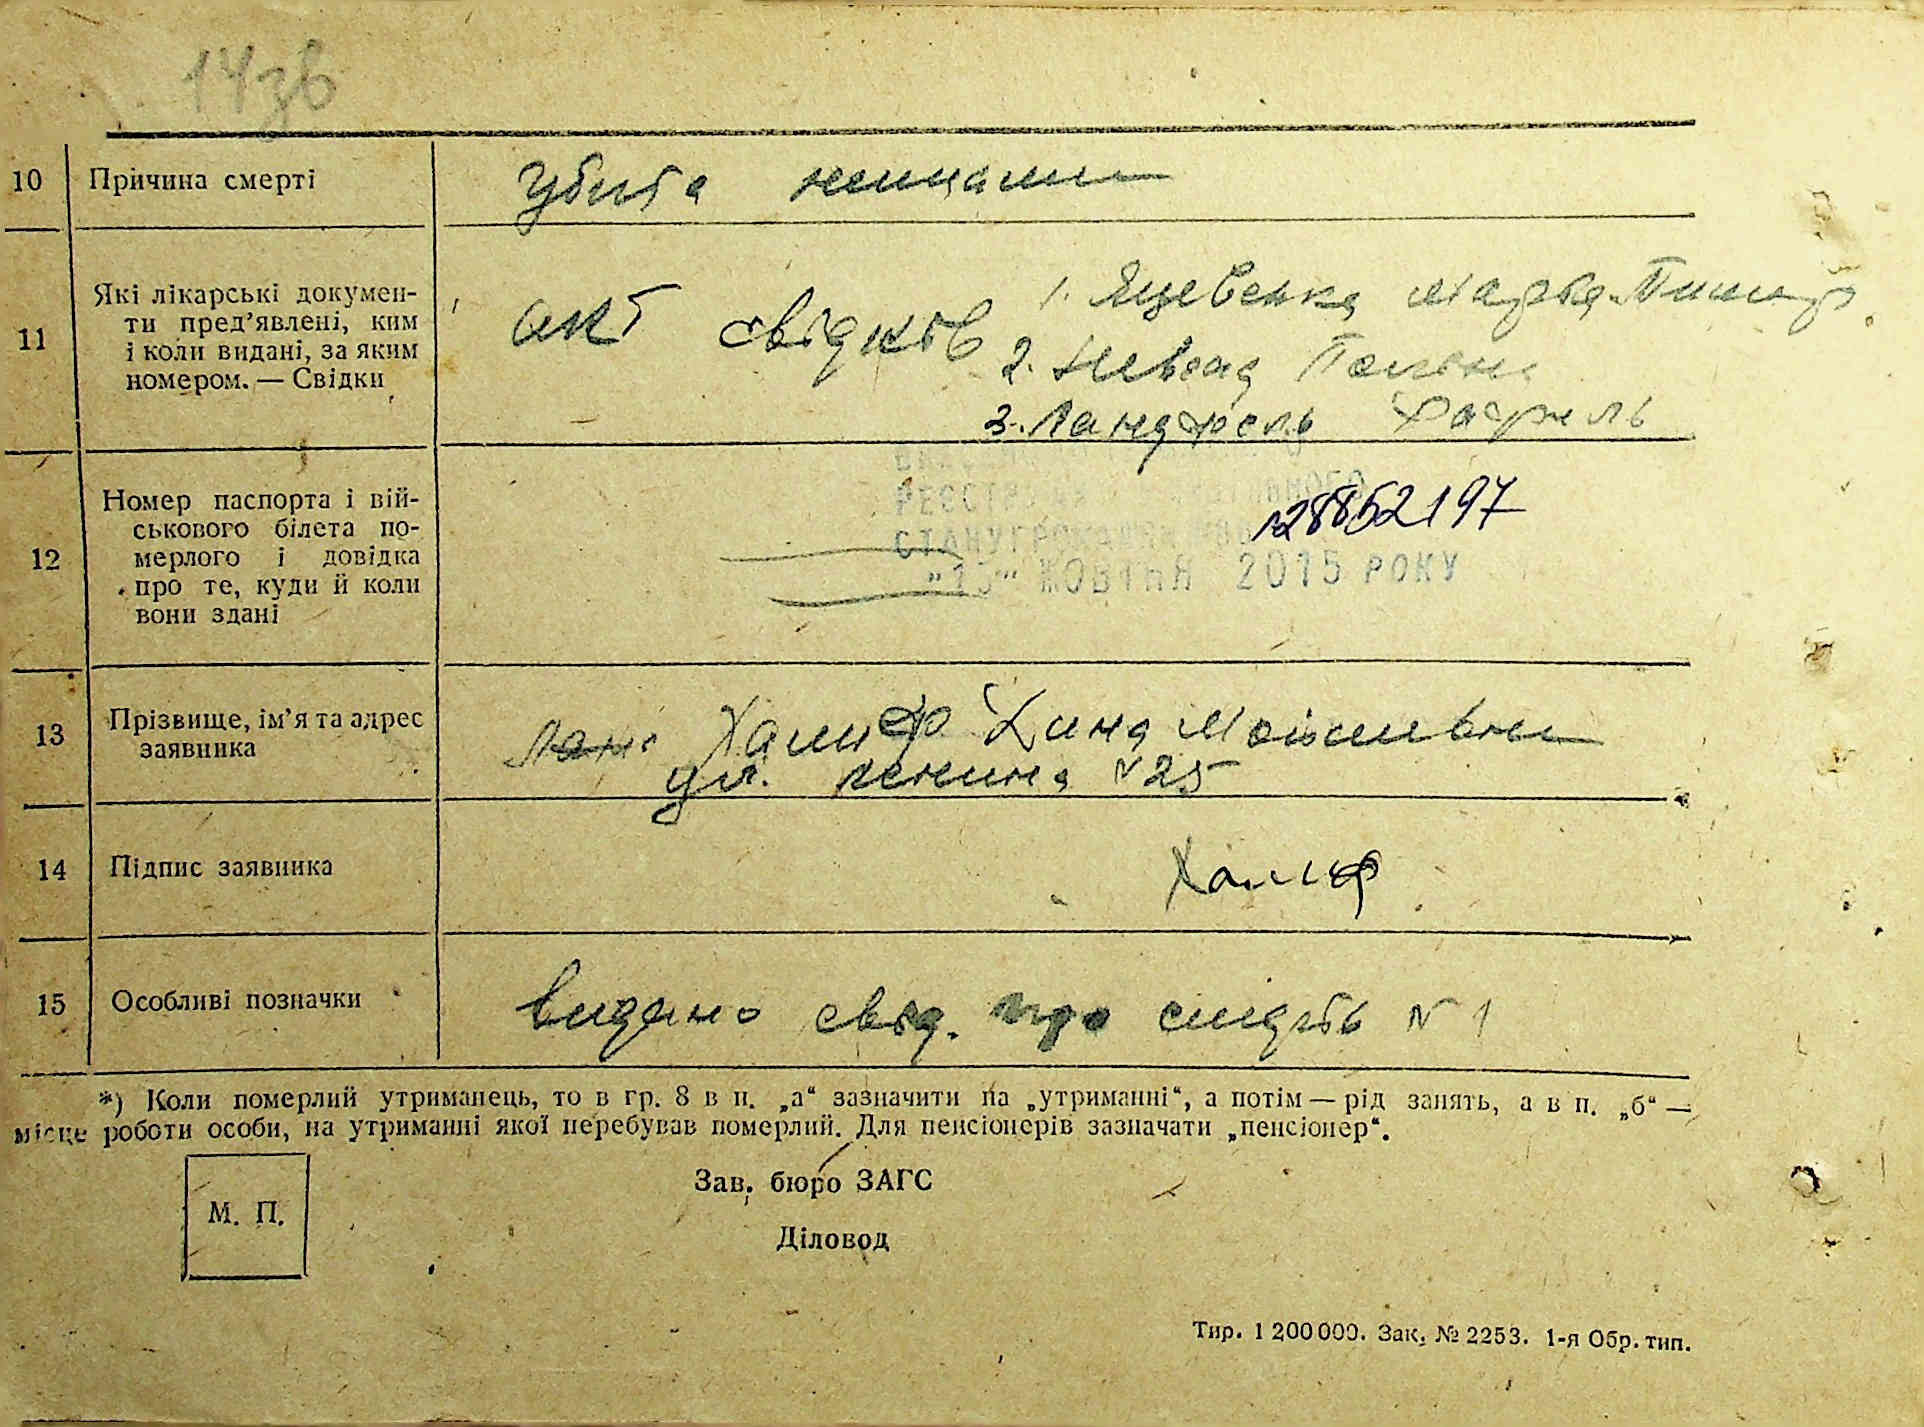 14зв
10 Причина смерті
Убита немцами
11 Які лікарські докумен-
ти пред’явлені, ким
і коли видані, за яким
номером. — Свідки
акт свідків 1. Яцевенко Марфа
2.
3. Ландфель Рафаель
12 Номер паспорта і вій-
ськового білета по-
мерлого і довідка
про те, куди й коли
вони здані
РЕЄСТР
СТАНУ ГРОМАДЯН
"15" ЖОВТНЯ 2015 РОКУ
28852197
13 Прізвище, ім’я та адрес
заявника
Халиф Хина Мойсеевна
ул. Ленина №25
14 Підпис заявника
Халиф
15 Особливі позначки
видано свід. про смерть № 1
*) Коли померлий утриманець, то в гр. 8 в п. „а“ зазначити на „утриманні“, а потім — рід занять, а в п. „б“ —
місце роботи особи, на утриманні якої перебував померлий. Для пенсіонерів зазначати „пенсіонер“.
М. П.
Зав. бюро ЗАГС
Діловод
Тир. 1 200 000. Зак. № 2253. 1-я Обр. тип.